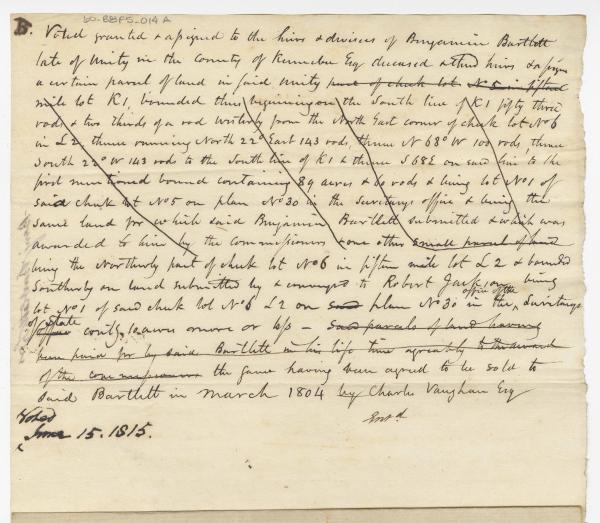 60-BBPS-014A
B. Voted granted & assigned to the hirs & devisees of Benjamin Bartlett
late of Unity in the County of Kennebec Esq deceased & their hirs & assigns
a certain parcel of land in said Unity part of chuk lot No 5 in fifteen
mile lot K1, bounded thus beginning on the South line of K1 fifty three
rods & two thirds of a rod Westerly from the North East corner of chuk lot No 6
in L2, thence running North 22° East 143 rods, thence N 68° W 100 rods, thence
South 22° W 143 rods to the South line of K1 & thence S 68 E on said line to the
first mentioned bound containing 89 acres & 60 rods & being lot No 1 of
said chuk lot No 5 on plan No 30 in the Secretarys office & being the
same land for which said Benjamin Bartlett submitted & which was
awarded to him by the commissioners & one other small parcel of land
being the Northerly part of chuk lot No 6 in fifteen mile lot L2 & bounded
Southerly on land submitted by & conveyed to Robert Jackson, being
lot No 1 of said chuk lot No 6 L2 on said plan No 30 in the office of the Secretarys
of State office contg acres more or less - said parcels of land having
been paid for by said Bartlett in his life time agreably to the award
of the commissioners the same having been agreed to be sold to
said Bartlett in March 1804 by Charles Vaughan Esq
Voted
June 15. 1815.
Entd